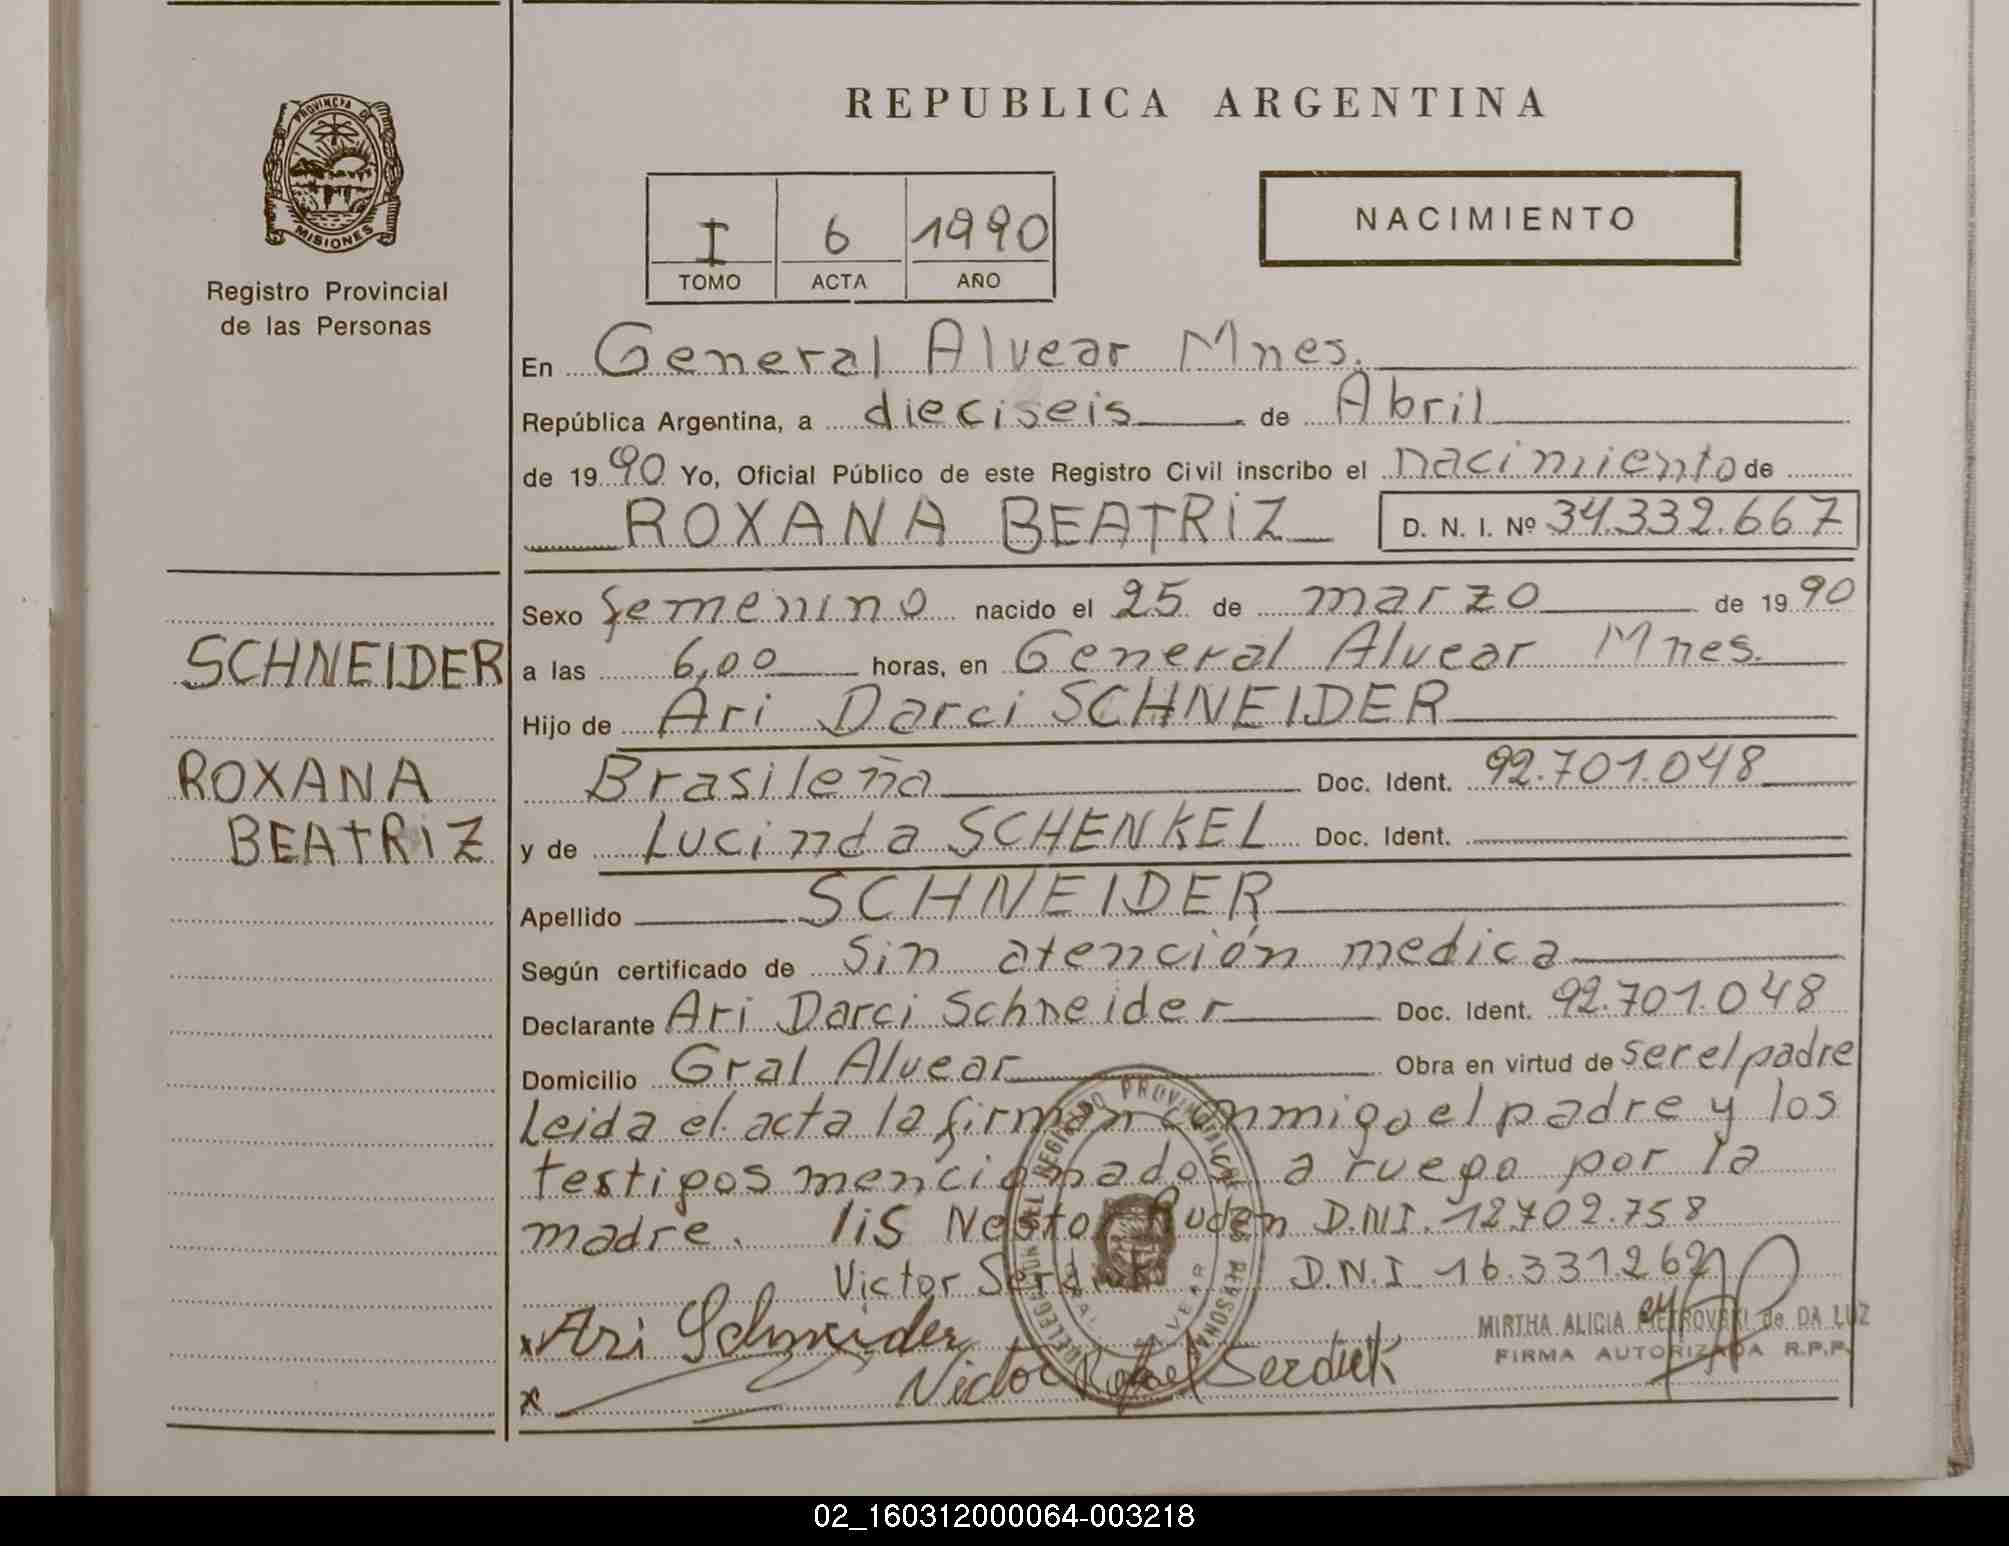 PROVINCIA DE
MISIONES
Registro Provincial
de las Personas
SCHNEIDER
ROXANA
BEATRIZ
REPUBLICA ARGENTINA
I 6 1990
TOMO ACTA AÑO
NACIMIENTO
En General Alvear Mnes.
República Argentina, a dieciseis de Abril
de 1990 Yo, Oficial Público de este Registro Civil inscribo el nacimiento de
ROXANA BEATRIZ D. N. I. Nº 34.332.667
Sexo femenino nacido el 25 de marzo de 1990
a las 6,00 horas, en General Alvear Mnes.
Hijo de Ari Darci SCHNEIDER
Brasileña Doc. Ident. 92.701.048
y de Lucinda SCHENKEL Doc. Ident.
Apellido SCHNEIDER
Según certificado de sin atención medica
Declarante Ari Darci Schneider Doc. Ident. 92.701.048
Domicilio Gral Alvear Obra en virtud de ser el padre
Leida el acta la firman conmigo el padre y los
testigos mencionados a ruego por la
madre. Nestor D.N.I. 12.702.758
Victor D.N.I 16.331.262
x Ari Schneider
MIRTHA ALICIA PIETROVSKI de DA LUZ
FIRMA AUTORIZADA R.P.P.
x Victor Serdiuk
REGISTRO PROVINCIAL DE LAS PERSONAS
02_160312000064-003218